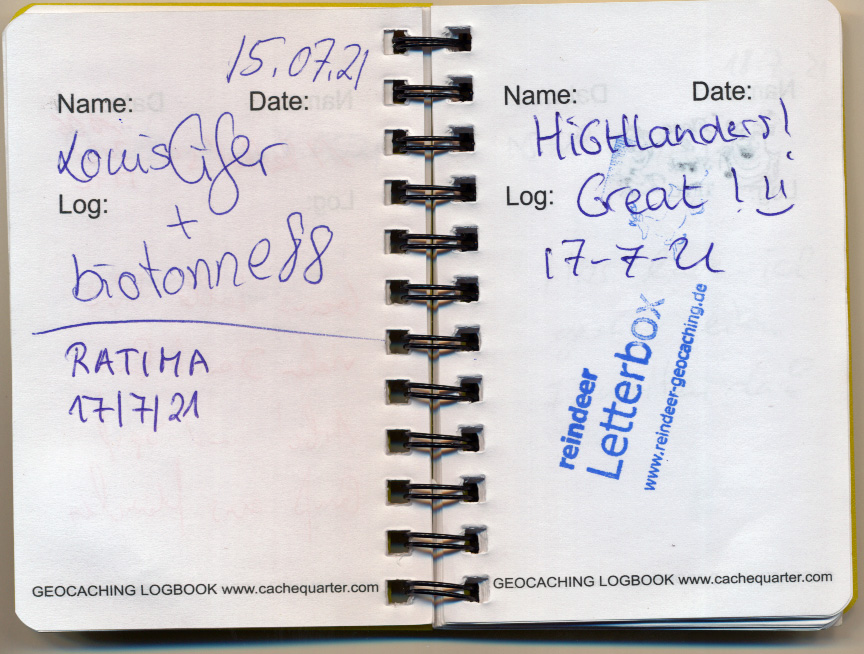 15.07.21
Name: Date:
LouisCifer
Log:
+
biotonne88
RATIMA
17/7/21
GEOCACHING LOGBOOK www.cachequarter.com
Name: Date:
HiGHlanders!
Log: Great ! :)
17-7-21
reindeer
Letterbox
www.reindeer-geocaching.de
GEOCACHING LOGBOOK www.cachequarter.com